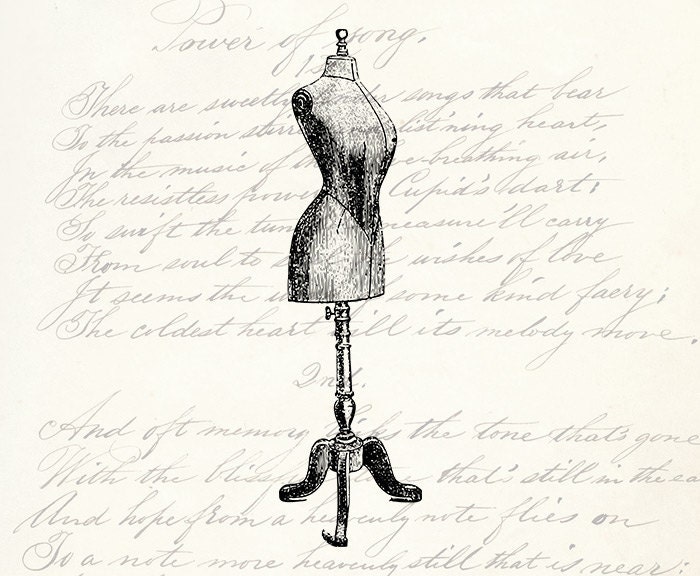 Power of song,
1st
There are sweetly songs that bear
To the passion stirr list'ning heart,
In the music of breathing air,
The resistless power Cupid's dart;
To swift the tun measure'll carry
From soul to wishes of love
It seems the some kind faery;
The coldest heart ill its melody move.
2nd.
And oft memory the tone that's gone
With the bliss that's still in the ea
And hope from a heavenly note flies on
To a note more heavenly still that is near: